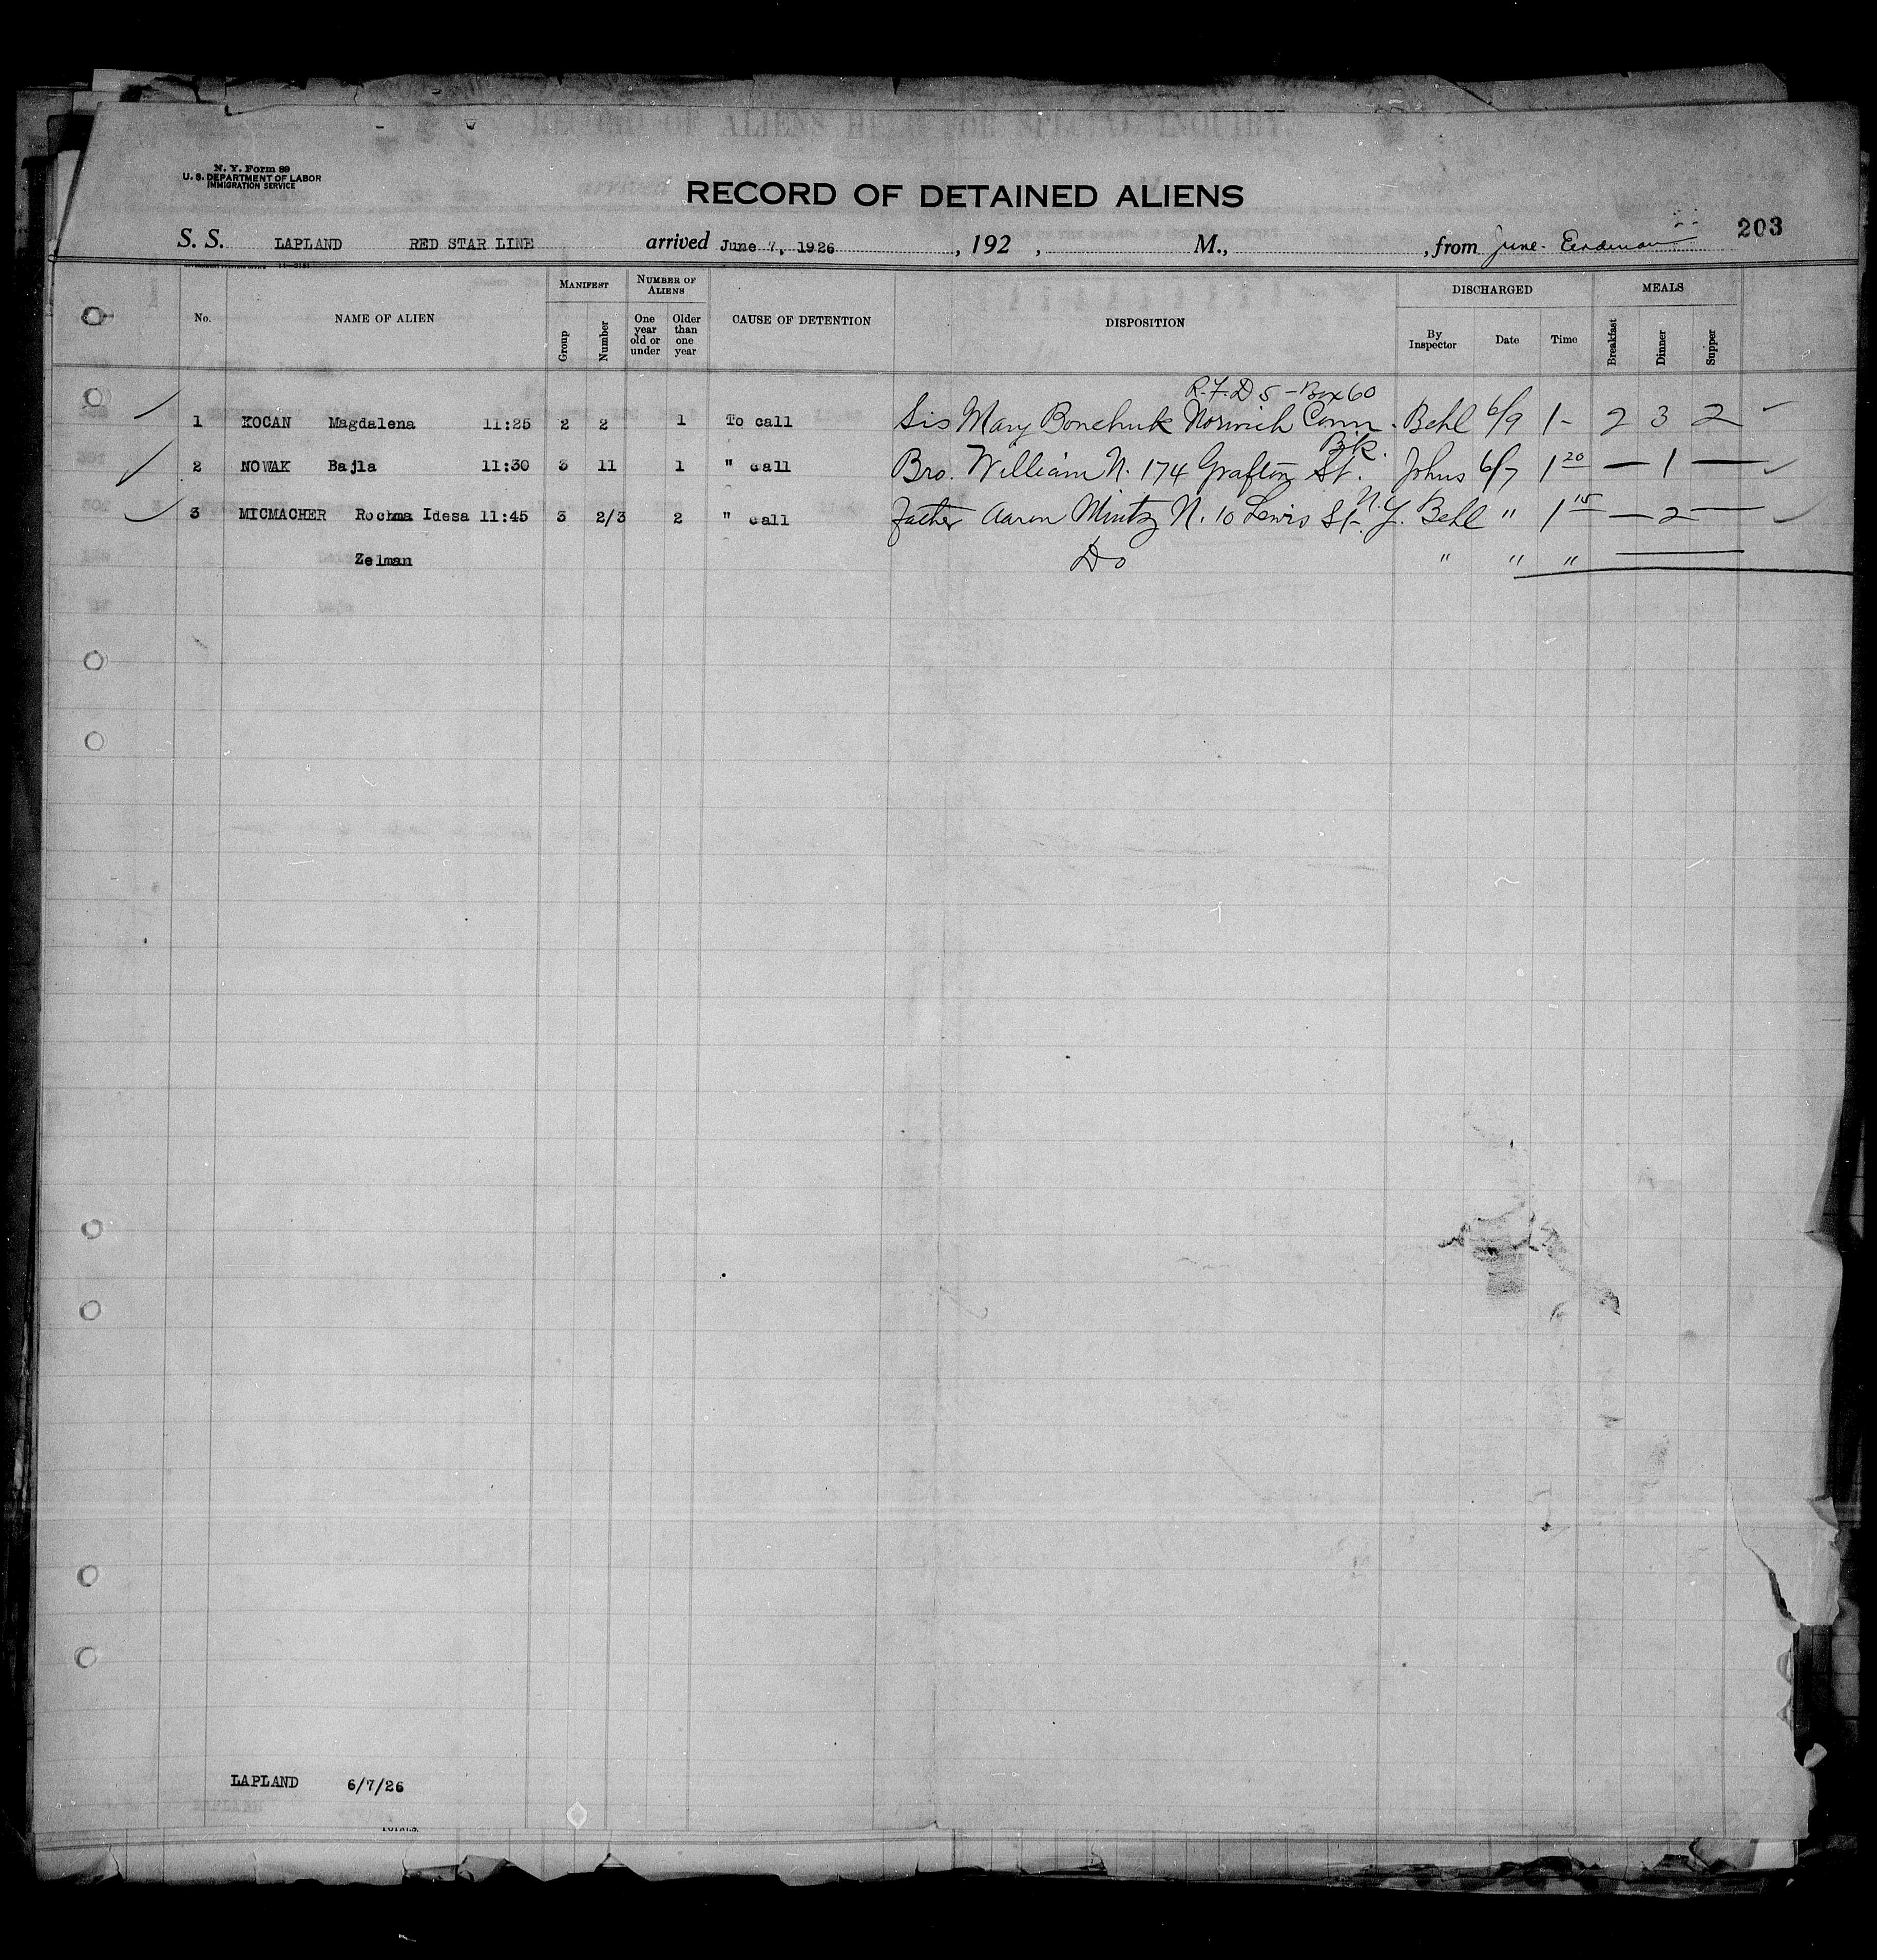 N. Y. Form 89
U. S. DEPARTMENT OF LABOR
IMMIGRATION SERVICE
RECORD OF DETAINED ALIENS
203
S. S. LAPLAND RED STAR LINE arrived June 7, 1926, 192 , M., , from June
No. NAME OF ALIEN MANIFEST Group Number NUMBER OF ALIENS One year old or under Older than one year CAUSE OF DETENTION DISPOSITION DISCHARGED By Inspector Date Time MEALS Breakfast Dinner Supper
R.F.D 5 - Box 60
1 KOCAN Magdalena 11:25 2 2 1 To call Sis Mary Bonchuk Norwich Conn. Behl 6/9 1- 2 3 2
Bk.
2 NOWAK Bajla 11:30 3 11 1 " call Bro. William N. 174 Grafton St. Johns 6/7 1 20 — 1 —
3 MICMACHER Rochma Idesa 11:45 3 2/3 2 " call Father Aaron Mintz N. 10 Lewis St. N.Y. Behl " 1 15 — 2 —
Zelman Do " " "
LAPLAND 6/7/26
TOTALS.